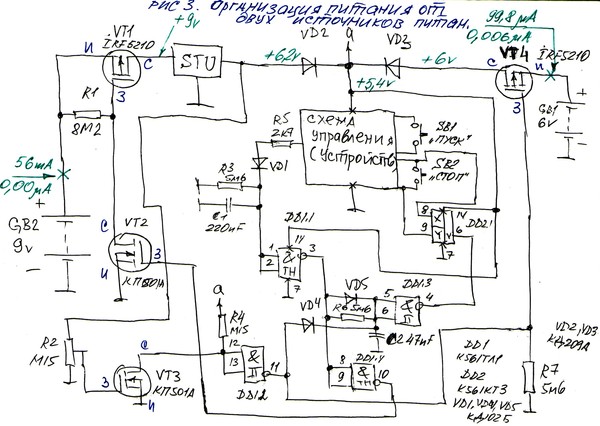 Рис 3. Организация питания от
двух источников питан.
+9v
VT1
IRF5210
и
с
з
STU
+6,2v
VD2
а
VD3
+6v
+5,4v
99,8 мА
0,006мА
VT4
IRF5210
с
и
з
+
GB1
6v
-
R1
8M2
56мА
0,00мА
+
GB2
9v
-
R5
2к7
VD1
схема
управления
(устройств)
SB1
"ПУСК"
SB2
"СТОП"
R3
5м6
C1
220nF
VT2
с
и
з
КП501А
DD1.1
1
2
&
ТН
14
3
7
8
9
X
Y
14
6
7
DD2.1
VD5
R6 5м6
5
6
&
DD1.3
4
VD4
C2 47nF
а
R4
М15
12
13
&
11
DD1.2
DD1.4
8
9
&
ТН
10
R2
М15
VT3
с
з
и
КП501А
DD1
К561ТЛ1
DD2
К561КТ3
VD1, VD4, VD5
КД102Б
VD2, VD3
КД209А
R7
5м6